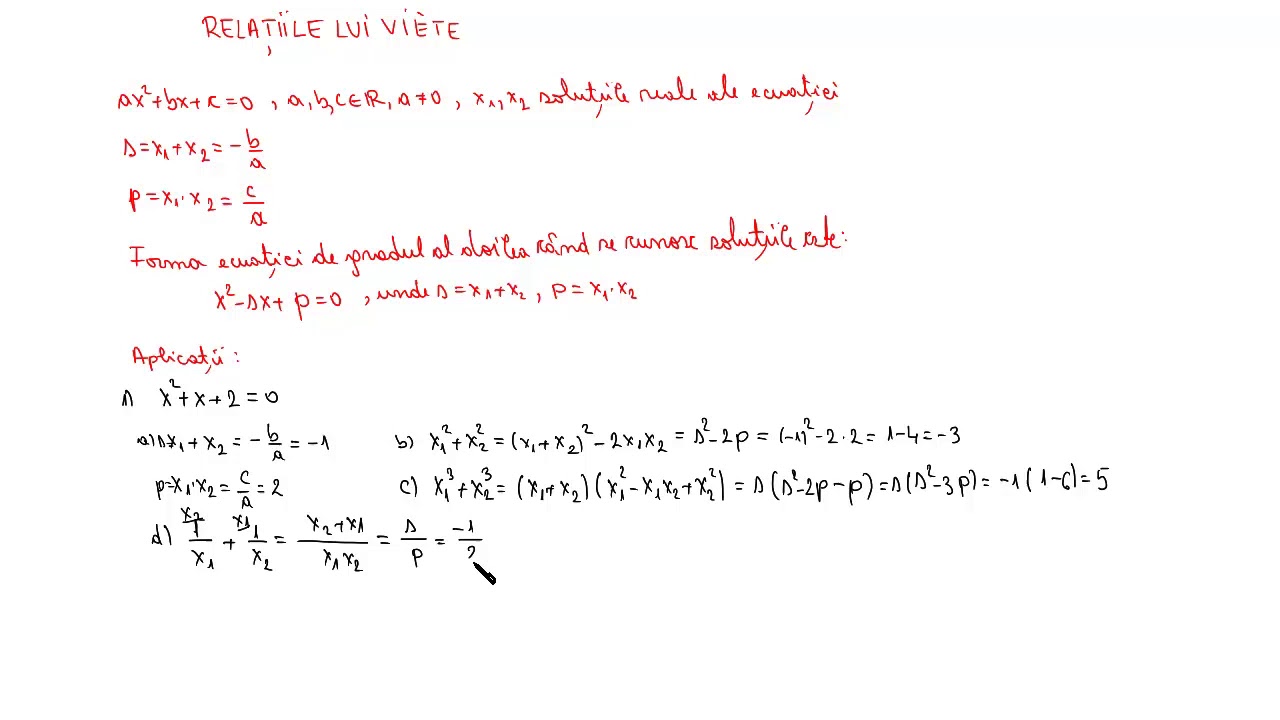 RELAȚIILE LUI VIÈTE
ax²+bx+c=0, a,b,c∈ℝ, a≠0, x₁,x₂ soluțiile reale ale ecuației
s=x₁+x₂=-b/a
p=x₁·x₂=c/a
Forma ecuației de gradul al doilea când se cunosc soluțiile este:
x²-sx+p=0, unde s=x₁+x₂, p=x₁·x₂
Aplicații:
1) x²+x+2=0
a) s=x₁+x₂=-b/a=-1
p=x₁·x₂=c/a=2
b) x₁²+x₂²=(x₁+x₂)²-2x₁x₂=s²-2p=(-1)²-2·2=1-4=-3
c) x₁³+x₂³=(x₁+x₂)(x₁²-x₁x₂+x₂²)=s(s²-2p-p)=s(s²-3p)=-1(1-6)=5
d) ˣ²⁾1/x₁+ˣ¹⁾1/x₂=(x₂+x₁)/(x₁x₂)=s/p=-1/2